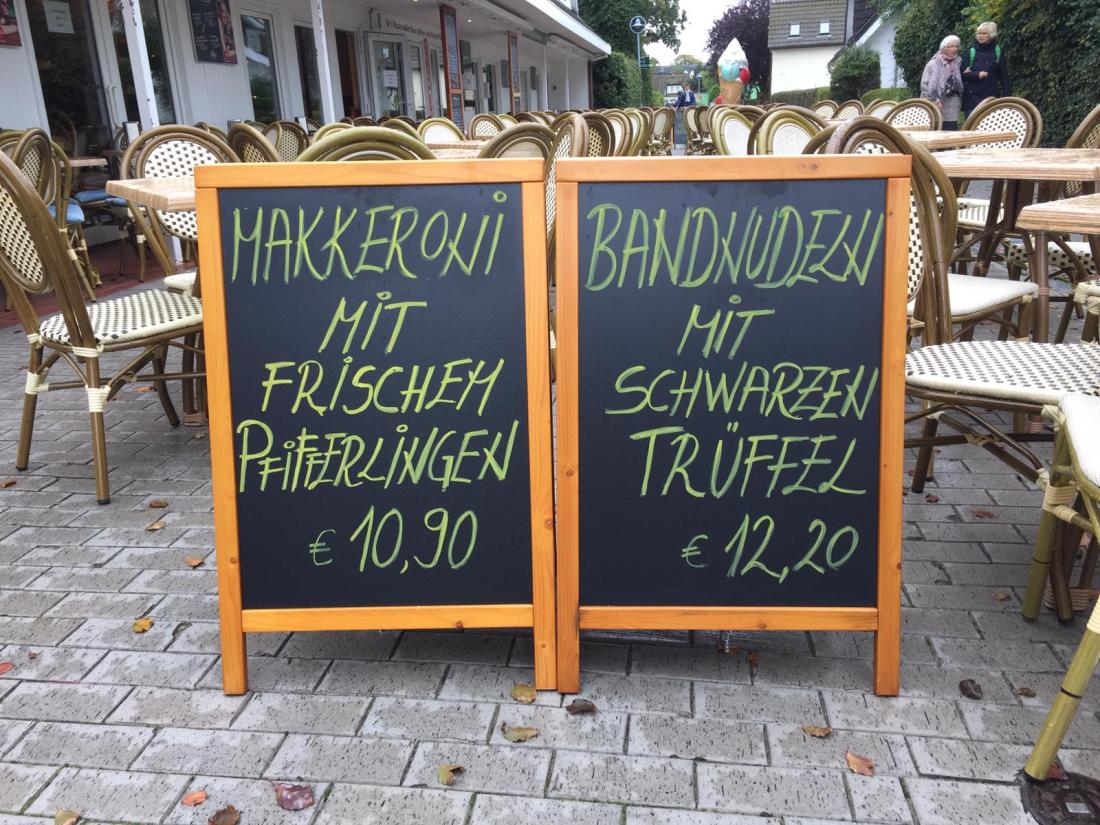 MAKKERONI
MIT
FRISCHEM
PFIFFERLINGEN
€ 10,90
BANDNUDELN
MIT
SCHWARZEN
TRÜFFEL
€ 12,20